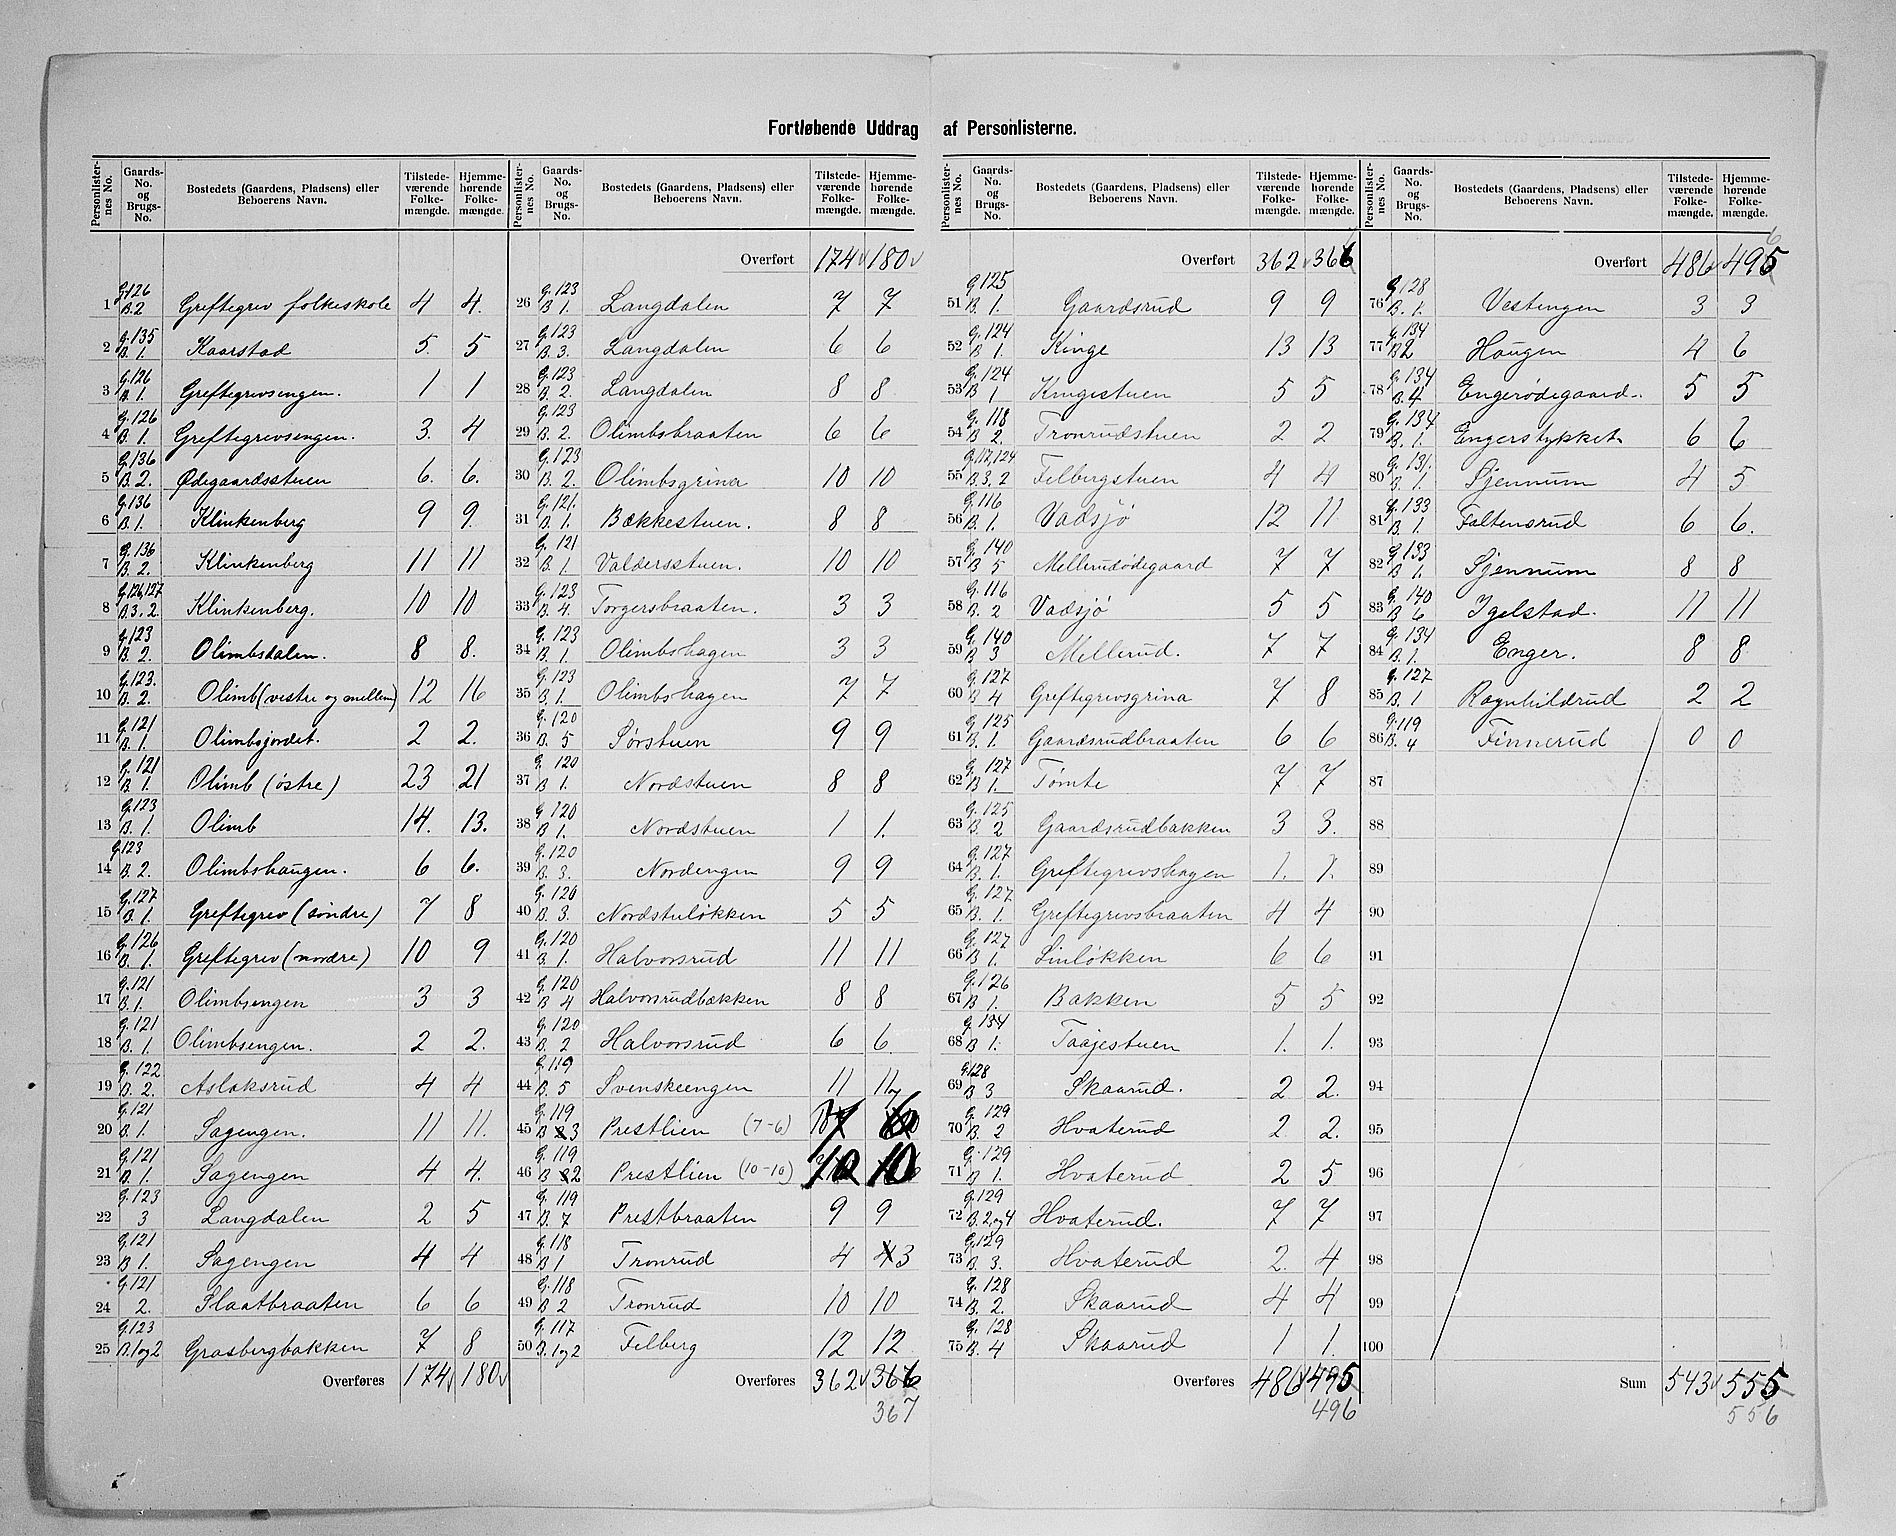 Fortløbende Uddrag af Personlisterne.
Personlister-nes No. | Gaards-No. og Brugs-No. | Bostedets (Gaardens, Pladsens) eller Beboerens Navn. | Tilstede-værende Folke-mængde. | Hjemme-hørende Folke-mængde.
1 G.126 B.2 Greftegrev folkeskole 4 4.
2 G.135 B.1. Kaarstad 5. 5
3 G.126 B.1. Greftegrevsengen. 1 1
4 G.126 B.1. Greftegrevsengen. 3. 4
5 G.136 B.2. Ødegaardsstuen 6. 6.
6 G.136 B.1. Klinkenberg 9 9.
7 G.136 B.2. Klinkenberg 11 11
8 G.126,127 B.3,2. Klinkenberg. 10 10
9 G.123 B.2. Olimbsdalen. 8 8.
10 G.123. B.2. Olimb (vestre og mellem) 12 16
11 G.121 B.1. Olimbsjordet. 2 2.
12 G.121 B.1. Olimb (østre) 23 21
13 G.123 B.1. Olimb 14. 13.
14 G.123 B.2. Olimbshaugen. 6 6.
15 G.127 B.1. Greftegrev (søndre) 7 8
16 G.126 B.1. Greftegrev (nordre) 10 9
17 G.121 B.1. Olimbsengen 3 3
18 G.121 B.1. Olimbsengen. 2 2.
19 G.122 B.2. Aslaksrud 4 4
20 G.121 B.1. Sagengen. 11 11.
21 G.121 B.1. Sagengen 4 4.
22 G.123 3 Langdalen 2 5
23 G.121 B 1. Sagengen 4 4
24 G.121 2. Slaatbraaten 6 6
25 G.123 B.1og2 Grasbergbakken 7 8
Overføres 174 180
Personlister-nes No. | Gaards-No. og Brugs-No. | Bostedets (Gaardens, Pladsens) eller Beboerens Navn. | Tilstede-værende Folke-mængde. | Hjemme-hørende Folke-mængde.
Overført 174 180
26 G.123 B 1. Langdalen 7 7
27 G.123 B.3. Langdalen 6 6
28 G.123 B.2. Langdalen 8 8
29 G.123 B.2. Olimbsbraaten 6 6
30 G.123 B.2. Olimbsgrina 10 10
31 G.121. B.1. Bækkestuen. 8 8
32 G.121 B.1. Valdersstuen. 10 10
33 G.123 B.4. Torgersbraaten. 3 3
34 G.123 B.1. Olimbshagen 3 3
35 G.123 B.1. Olimbshagen 7 7
36 G.120 B.5 Sørstuen 9 9
37 G.120 B 1. Nordstuen 8 8
38 G.120 B 1. Nordstuen 1 1.
39 G.120 B.3. Nordengen 9 9
40 G.120 B.3. Nordstuløkken 5 5
41 G.120 B.1. Halvorsrud 11 11
42 G.120 B 4 Halvorsrudbakken 8 8
43 G.120 B.2 Halvorsrud 6 6.
44 G.119 B.5 Svenskeengen 11 11
45 G.119 B 3 Prestlien (7-6) 7 6
46 G.119 B 2 Prestlien (10-10) 10 10
47 G.119 B.7 Prestbraaten 9 9
48 G.118 B 1 Tronrud 4 3
49 G.118 B 2 Tronrud 10 10
50 G.117 B.1og2 Felberg 12 12
Overføres 362 366
367
Personlister-nes No. | Gaards-No. og Brugs-No. | Bostedets (Gaardens, Pladsens) eller Beboerens Navn. | Tilstede-værende Folke-mængde. | Hjemme-hørende Folke-mængde.
Overført 362 366
51 G.125 B.1. Gaardsrud 9 9
52 G.124 B 1. Kinge 13 13
53 G.124 B 1 Kingestuen 5 5
54 G.118 B 2. Tronrudstuen 2 2
55 G.117,124 B.3,2 Felbergstuen 4 4
56 G.116 B.1. Vadsjø 12 11
57 G.140 B 5 Mellerudødegaard 7 7
58 G.116 B.2 Vadsjø 5 5
59 G.140 B 3 Mellerud. 7 7
60 G.127 B 4 Greftegrevsgrina 7 8
61 G.125 B.1. Gaardsrudbraaten 6 6
62 G.127 B 1. Tømte 7 7
63 G.125 B. 2 Gaardsrudbakken 3 3.
64 G.127 B.1. Greftegrevshagen 1. 1.
65 G.127 B.1. Greftegrevsbraaten 4 4
66 G.127 B 1. Linløkken 6 6
67 G.126 B 1. Bakken 5 5
68 G.134 B 1. Taajestuen 1. 1.
69 G.128 B 3 Skaarud. 2 2.
70 G.129 B. 2 Hvaterud 2 2.
71 G.129 B 1. Hvaterud 2 5
72 G.129 B.2og4 Hvaterud. 7 7
73 G.129 B 3. Hvaterud 2. 4
74 G.128 B.2. Skaarud 4 4
75 G.128 B.4 Skaarud 1 1.
Overføres 486 495
496
Personlister-nes No. | Gaards-No. og Brugs-No. | Bostedets (Gaardens, Pladsens) eller Beboerens Navn. | Tilstede-værende Folke-mængde. | Hjemme-hørende Folke-mængde.
6
Overført 486 495
76 G.128 B.1. Vestengen 3 3
77 G.134 B 2 Haugen 4 6
78 G.134 B.4 Engerødegaard. 5 5
79 G.134 B.1. Engerstykket 6 6
80 G.131. B.1. Sjennum 4 5
81 G.133 B.1. Faltensrud 6 6.
82 G.133 B 1. Sjennum 8 8
83 G.140 B 6 Igelstad. 11 11
84 G.134 B.1. Enger. 8 8
85 G.127 B.1 Ragnhildrud 2 2
86 G.119 B.4 Finnerud 0 0
87
88
89
90
91
92
93
94
95
96
97
98
99
100
Sum 543 555
556